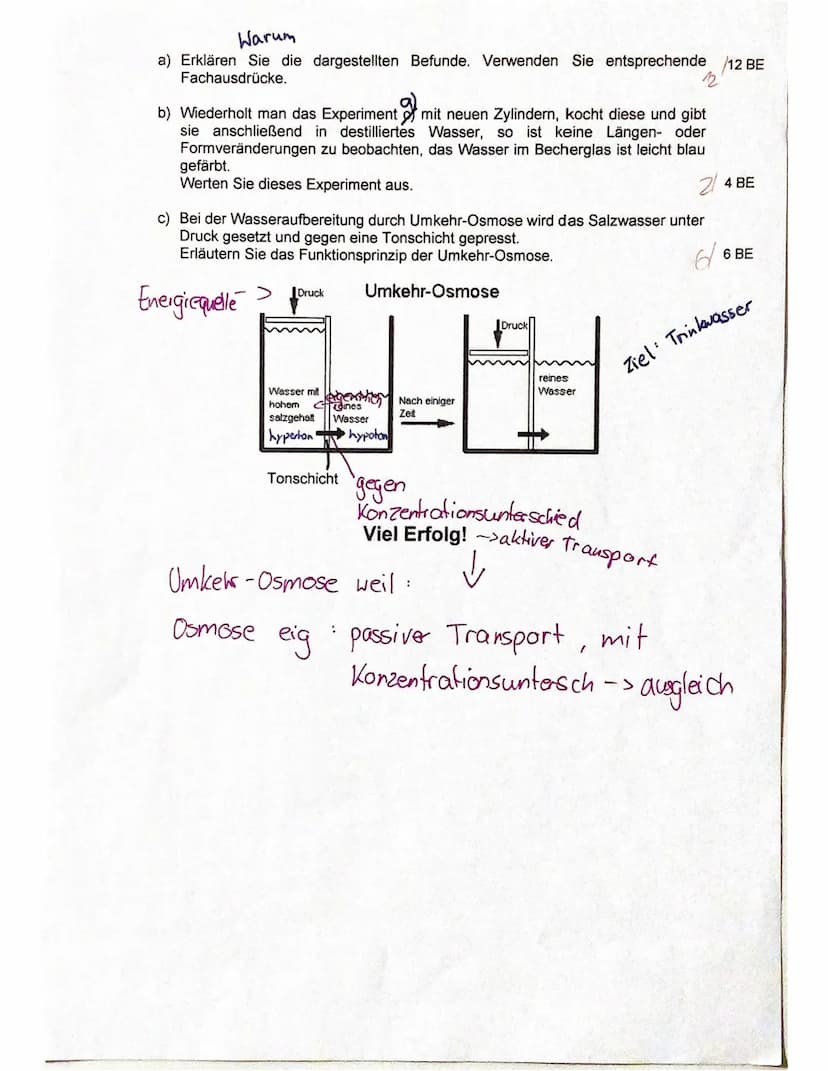 Warum
a) Erklären Sie die dargestellten Befunde. Verwenden Sie entsprechende /12 BE
Fachausdrücke. 12
b) Wiederholt man das Experiment a) mit neuen Zylindern, kocht diese und gibt
sie anschließend in destilliertes Wasser, so ist keine Längen- oder
Formveränderungen zu beobachten, das Wasser im Becherglas ist leicht blau
gefärbt.
Werten Sie dieses Experiment aus. 2/ 4 BE
c) Bei der Wasseraufbereitung durch Umkehr-Osmose wird das Salzwasser unter
Druck gesetzt und gegen eine Tonschicht gepresst.
Erläutern Sie das Funktionsprinzip der Umkehr-Osmose. 6/ 6 BE
Energiequelle > Druck Umkehr-Osmose
Druck
Ziel: Trinkwasser
reines
Wasser
Wasser mit
hohem
salzgehalt
reines
Wasser
Nach einiger
Zeit
hyperton hypoton
Tonschicht gegen
Konzentrationsunterschied
Viel Erfolg! ->aktiver Transport
Umkehr-Osmose weil :
Osmose eig : passiver Transport, mit
Konzentrationsuntersch -> ausgleich